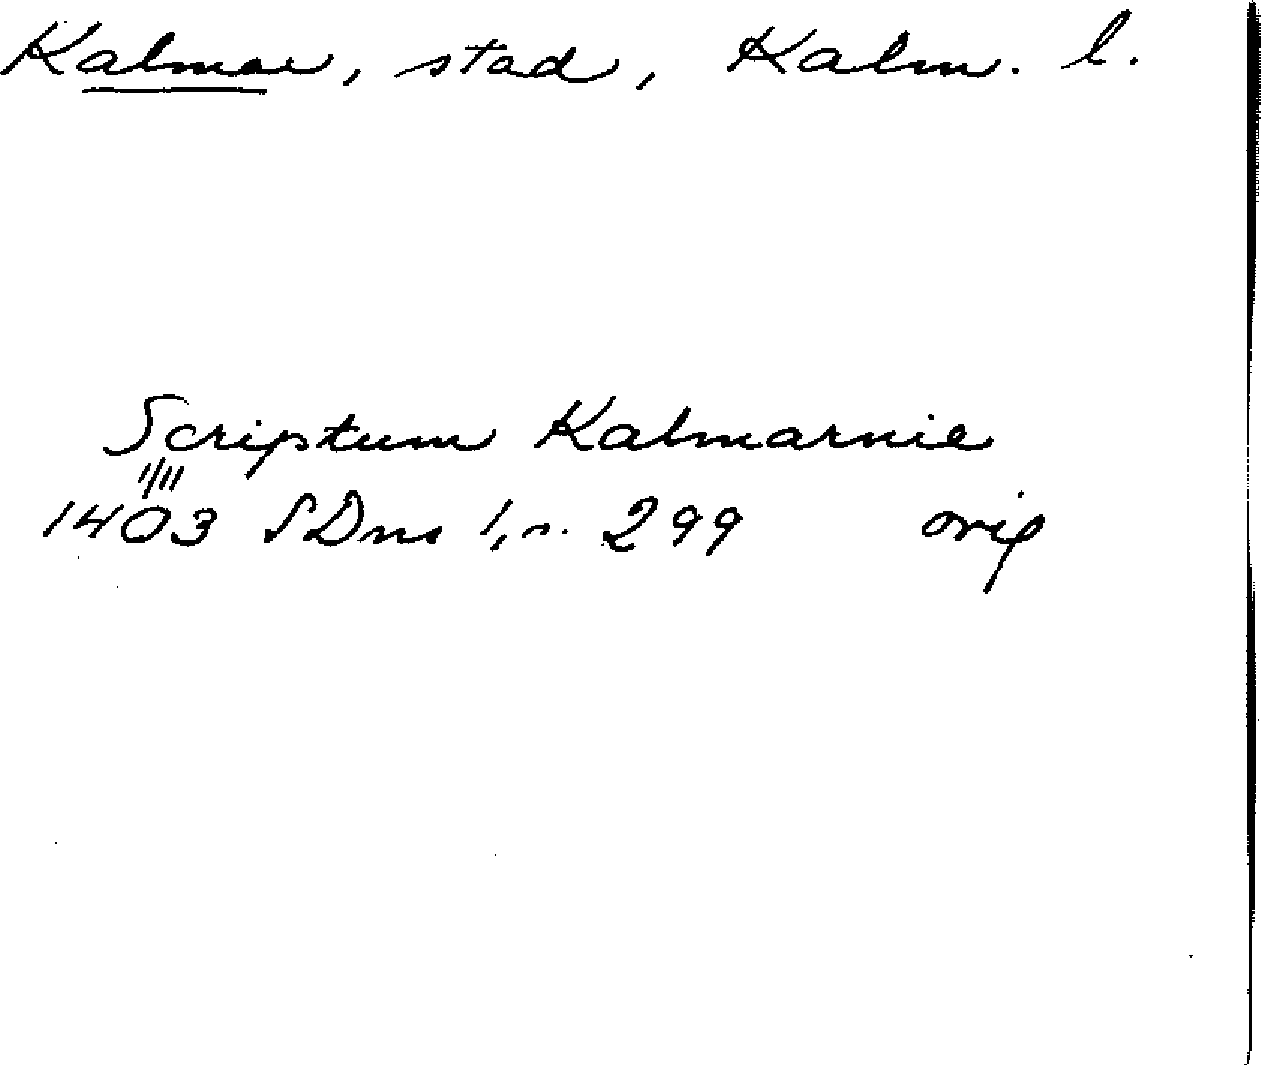 Kalmar, stad, Kalm. l.
Scriptum Kalmarnie
11/11
1403 SDns 1, n. 299 orig